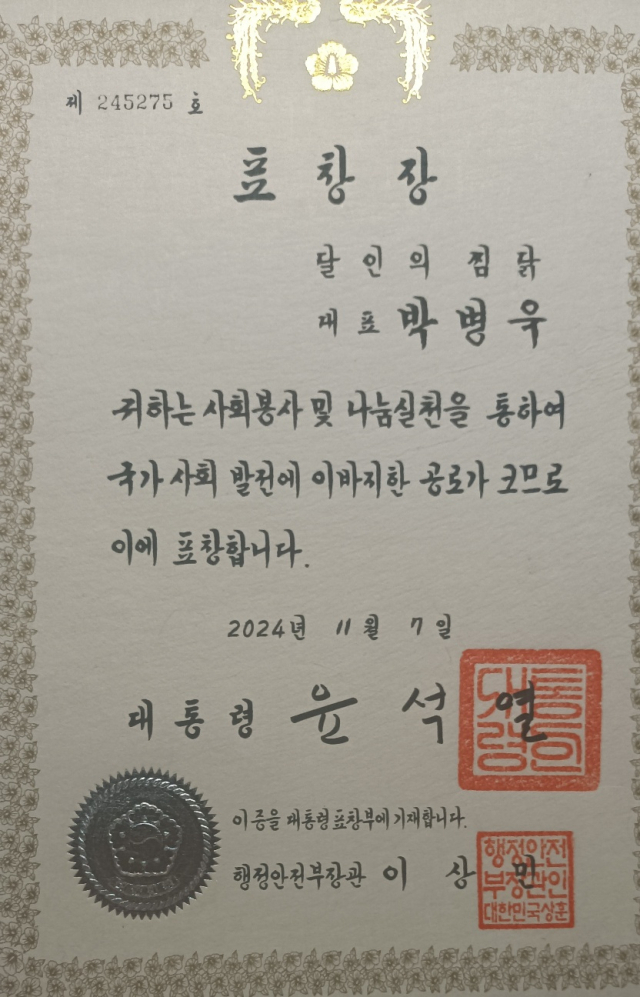 제 245275 호
표창장
달인의 찜닭
대표 박병욱
귀하는 사회봉사 및 나눔실천을 통하여
국가 사회 발전에 이바지한 공로가 크므로
이에 표창합니다.
2024년 11월 7일
대통령 윤석열
대통령의인
이 증을 대통령표창부에 기재합니다.
행정안전부장관 이상민
행정안전
부장관인
대한민국상훈